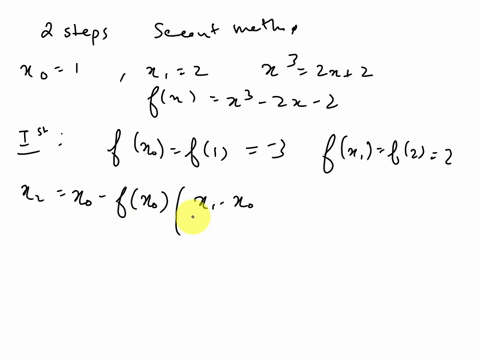 2 steps Secant metho
x₀ = 1 , x₁ = 2 x³ = 2x + 2
f(x) = x³ - 2x - 2
Iˢᵗ : f(x₀) = f(1) = -3 f(x₁) = f(2) = 2
x₂ = x₀ - f(x₀) ( x₁ - x₀